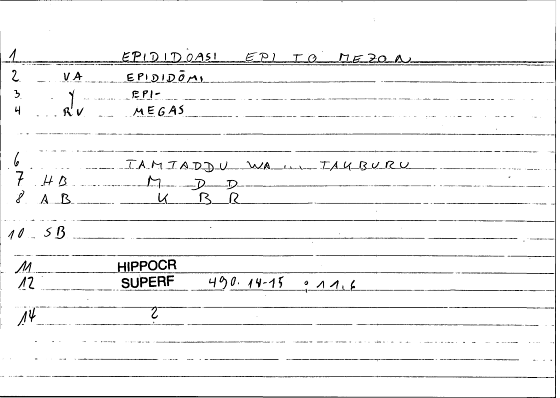 1 EPIDIDOASI EPI TO MEZON
2 VA EPIDIDŌMI
3 Y EPI-
4 RV MEGAS
6 TAMTADDU WA ... TAKBURU
7 HB M D D
8 AB K B R
10 SB
11 HIPPOCR
12 SUPERF 490.14-15 ; 11.6
14 2